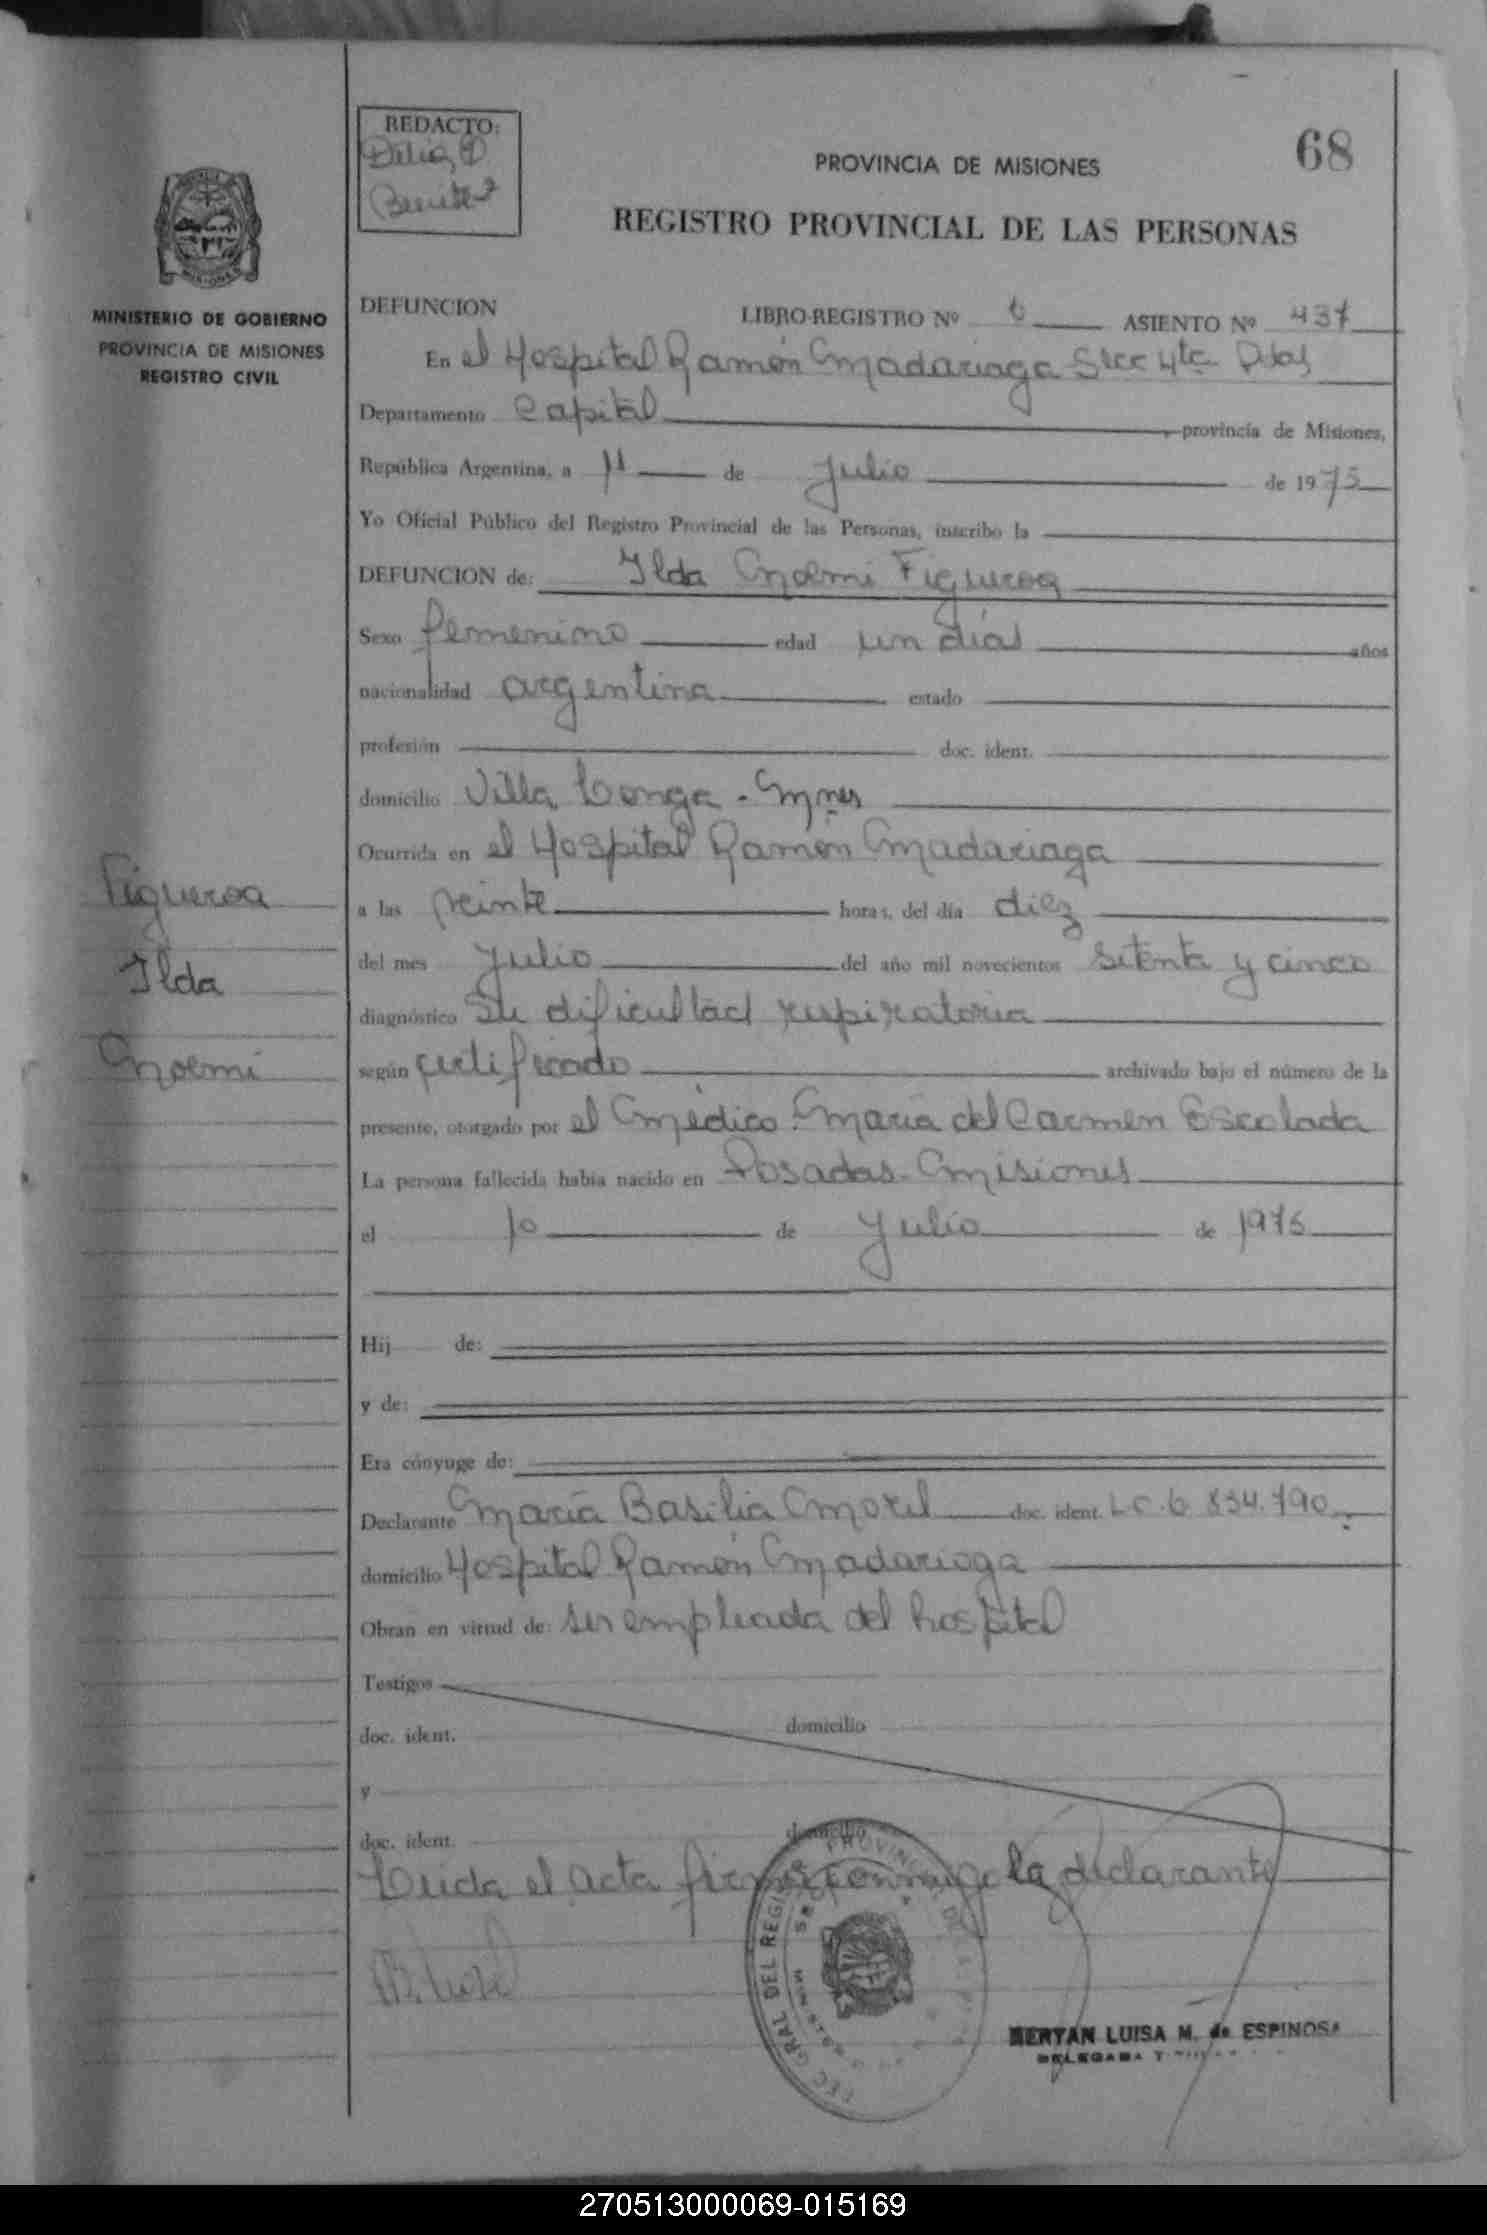 REDACTO:
Delia D
Benitez
PROVINCIA DE MISIONES
68
REGISTRO PROVINCIAL DE LAS PERSONAS
MINISTERIO DE GOBIERNO
PROVINCIA DE MISIONES
REGISTRO CIVIL
DEFUNCION LIBRO-REGISTRO Nº 6 ASIENTO Nº 437
En el Hospital Ramón Madariaga Secc 4ta Pdas
Departamento Capital , provincia de Misiones,
República Argentina, a 11 de Julio de 1975
Yo Oficial Público del Registro Provincial de las Personas, inscribo la
DEFUNCION de: Ilda Noemi Figueroa
Sexo femenino edad un días años
nacionalidad argentina estado
profesión doc. ident.
domicilio Villa Longa - Mnes
Ocurrida en el Hospital Ramón Madariaga
a las veinte horas, del día diez
del mes Julio del año mil novecientos setenta y cinco
diagnóstico Su dificultad respiratoria
según certificado archivado bajo el número de la
presente, otorgado por el Médico María del Carmen Escolada
La persona fallecida había nacido en Posadas - Misiones
el 10 de Julio de 1975
Hij de:
y de:
Era cónyuge de:
Declarante María Basilia Morel doc. ident. L.C. 6.834.790
domicilio Hospital Ramón Madariaga
Obran en virtud de: ser empleada del hospital
Testigos
doc. ident. domicilio
y
doc. ident. domicilio
Leida el acta firma conmigo la declarante
B. Morel
BERTAN LUISA M. de ESPINOSA
DELEGADA
Figueroa
Ilda
Noemi
270513000069-015169